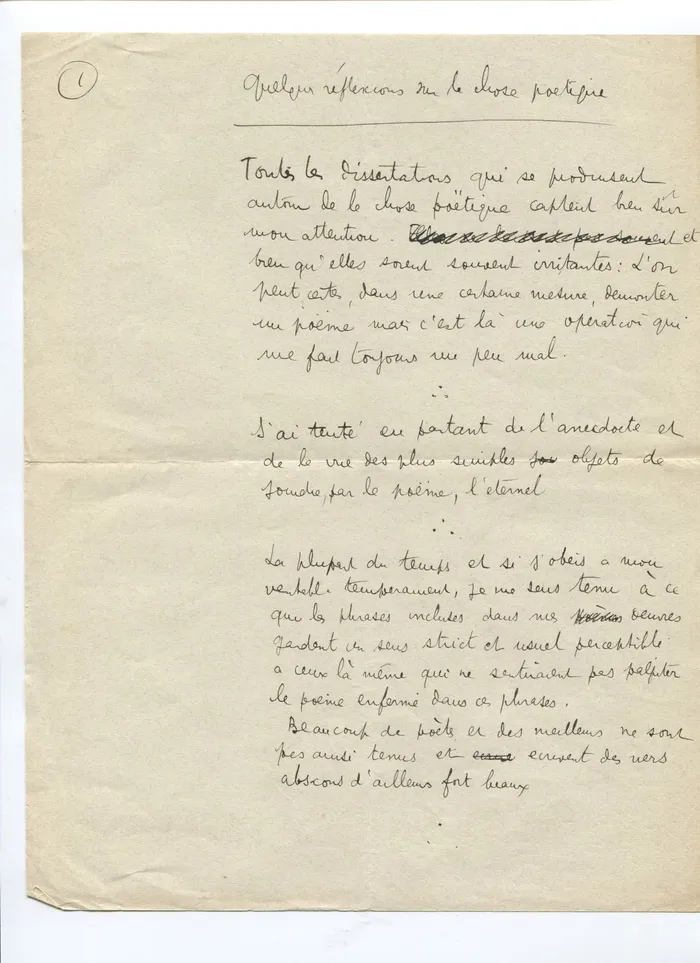 1
Quelques réflexions sur la chose poétique
Toutes les dissertations qui se produisent
autour de la chose poëtique captent bien sûr
mon attention. souvent et
bien qu'elles soient souvent irritantes : L'on
peut, certes, dans une certaine mesure, démonter
un poëme mais c'est là une operation qui
me fait toujours un peu mal.
J'ai tenté en partant de l'anecdocte et
de la vie des plus simples objets de
joindre, par le poëme, l'éternel
La plupart du temps et si j'obeis a mon
veritable temperament, je me sens tenu à ce
que les phrases incluses dans mes oeuvres
gardent un sens strict et usuel perceptible
a ceux là même qui ne sentiraient pas palpiter
le poëme enfermé dans ces phrases.
Beaucoup de poètes et des meilleurs ne sont
pas ainsi tenus et ecrivent des vers
abscons d'ailleurs fort beaux